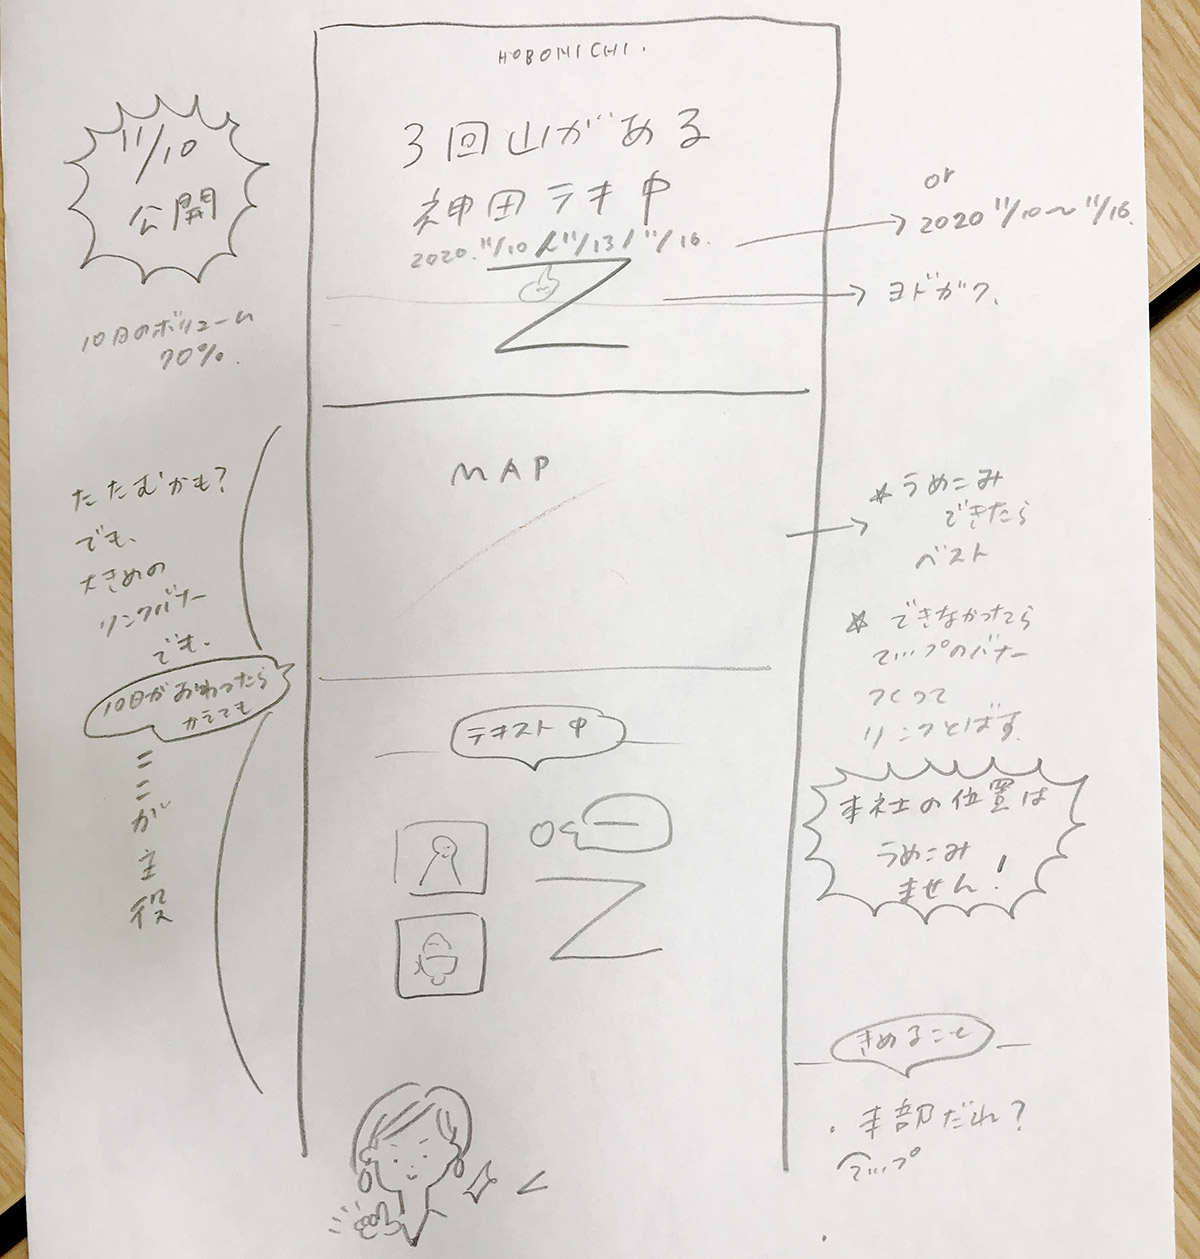 HOBONICHI.
3回山がある
神田テキ中
2020.11/10 11/13 11/16.
11/10
公開
10日のボリューム
70%.
or
2020 11/10〜11/16.
ヨドガワ.
MAP
たたむかも?
でも、
大きめの
リンクバナー
でも、
10日がおわったら
かえても
ここが主役
*うめこみ
できたら
ベスト
*できなかったら
マップのバナー
つくって
リンクとばす.
本社の位置は
うめこみ
ません!
テキスト中
きめること
・本部だれ?
マップ